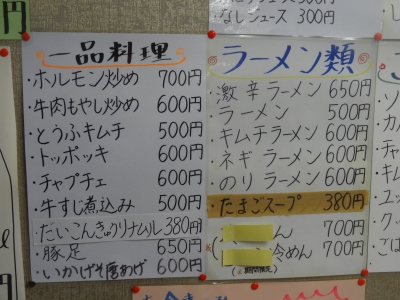 円
なしジュース 300円
一品料理
・ホルモン炒め 700円
・牛肉もやし炒め 600円
・とうふキムチ 500円
・トッポッキ 600円
・チャプチェ 600円
・牛すじ煮込み 500円
・だいこんきゅうりナムル 380円
・豚足 650円
・いかげそ唐あげ 600円
ラーメン類
・激辛ラーメン 650円
・ラーメン 500円
・キムチラーメン 600円
・ネギラーメン 600円
・のりラーメン 600円
・たまごスープ 380円
ん 700円
冷めん 700円
(※期間限定)